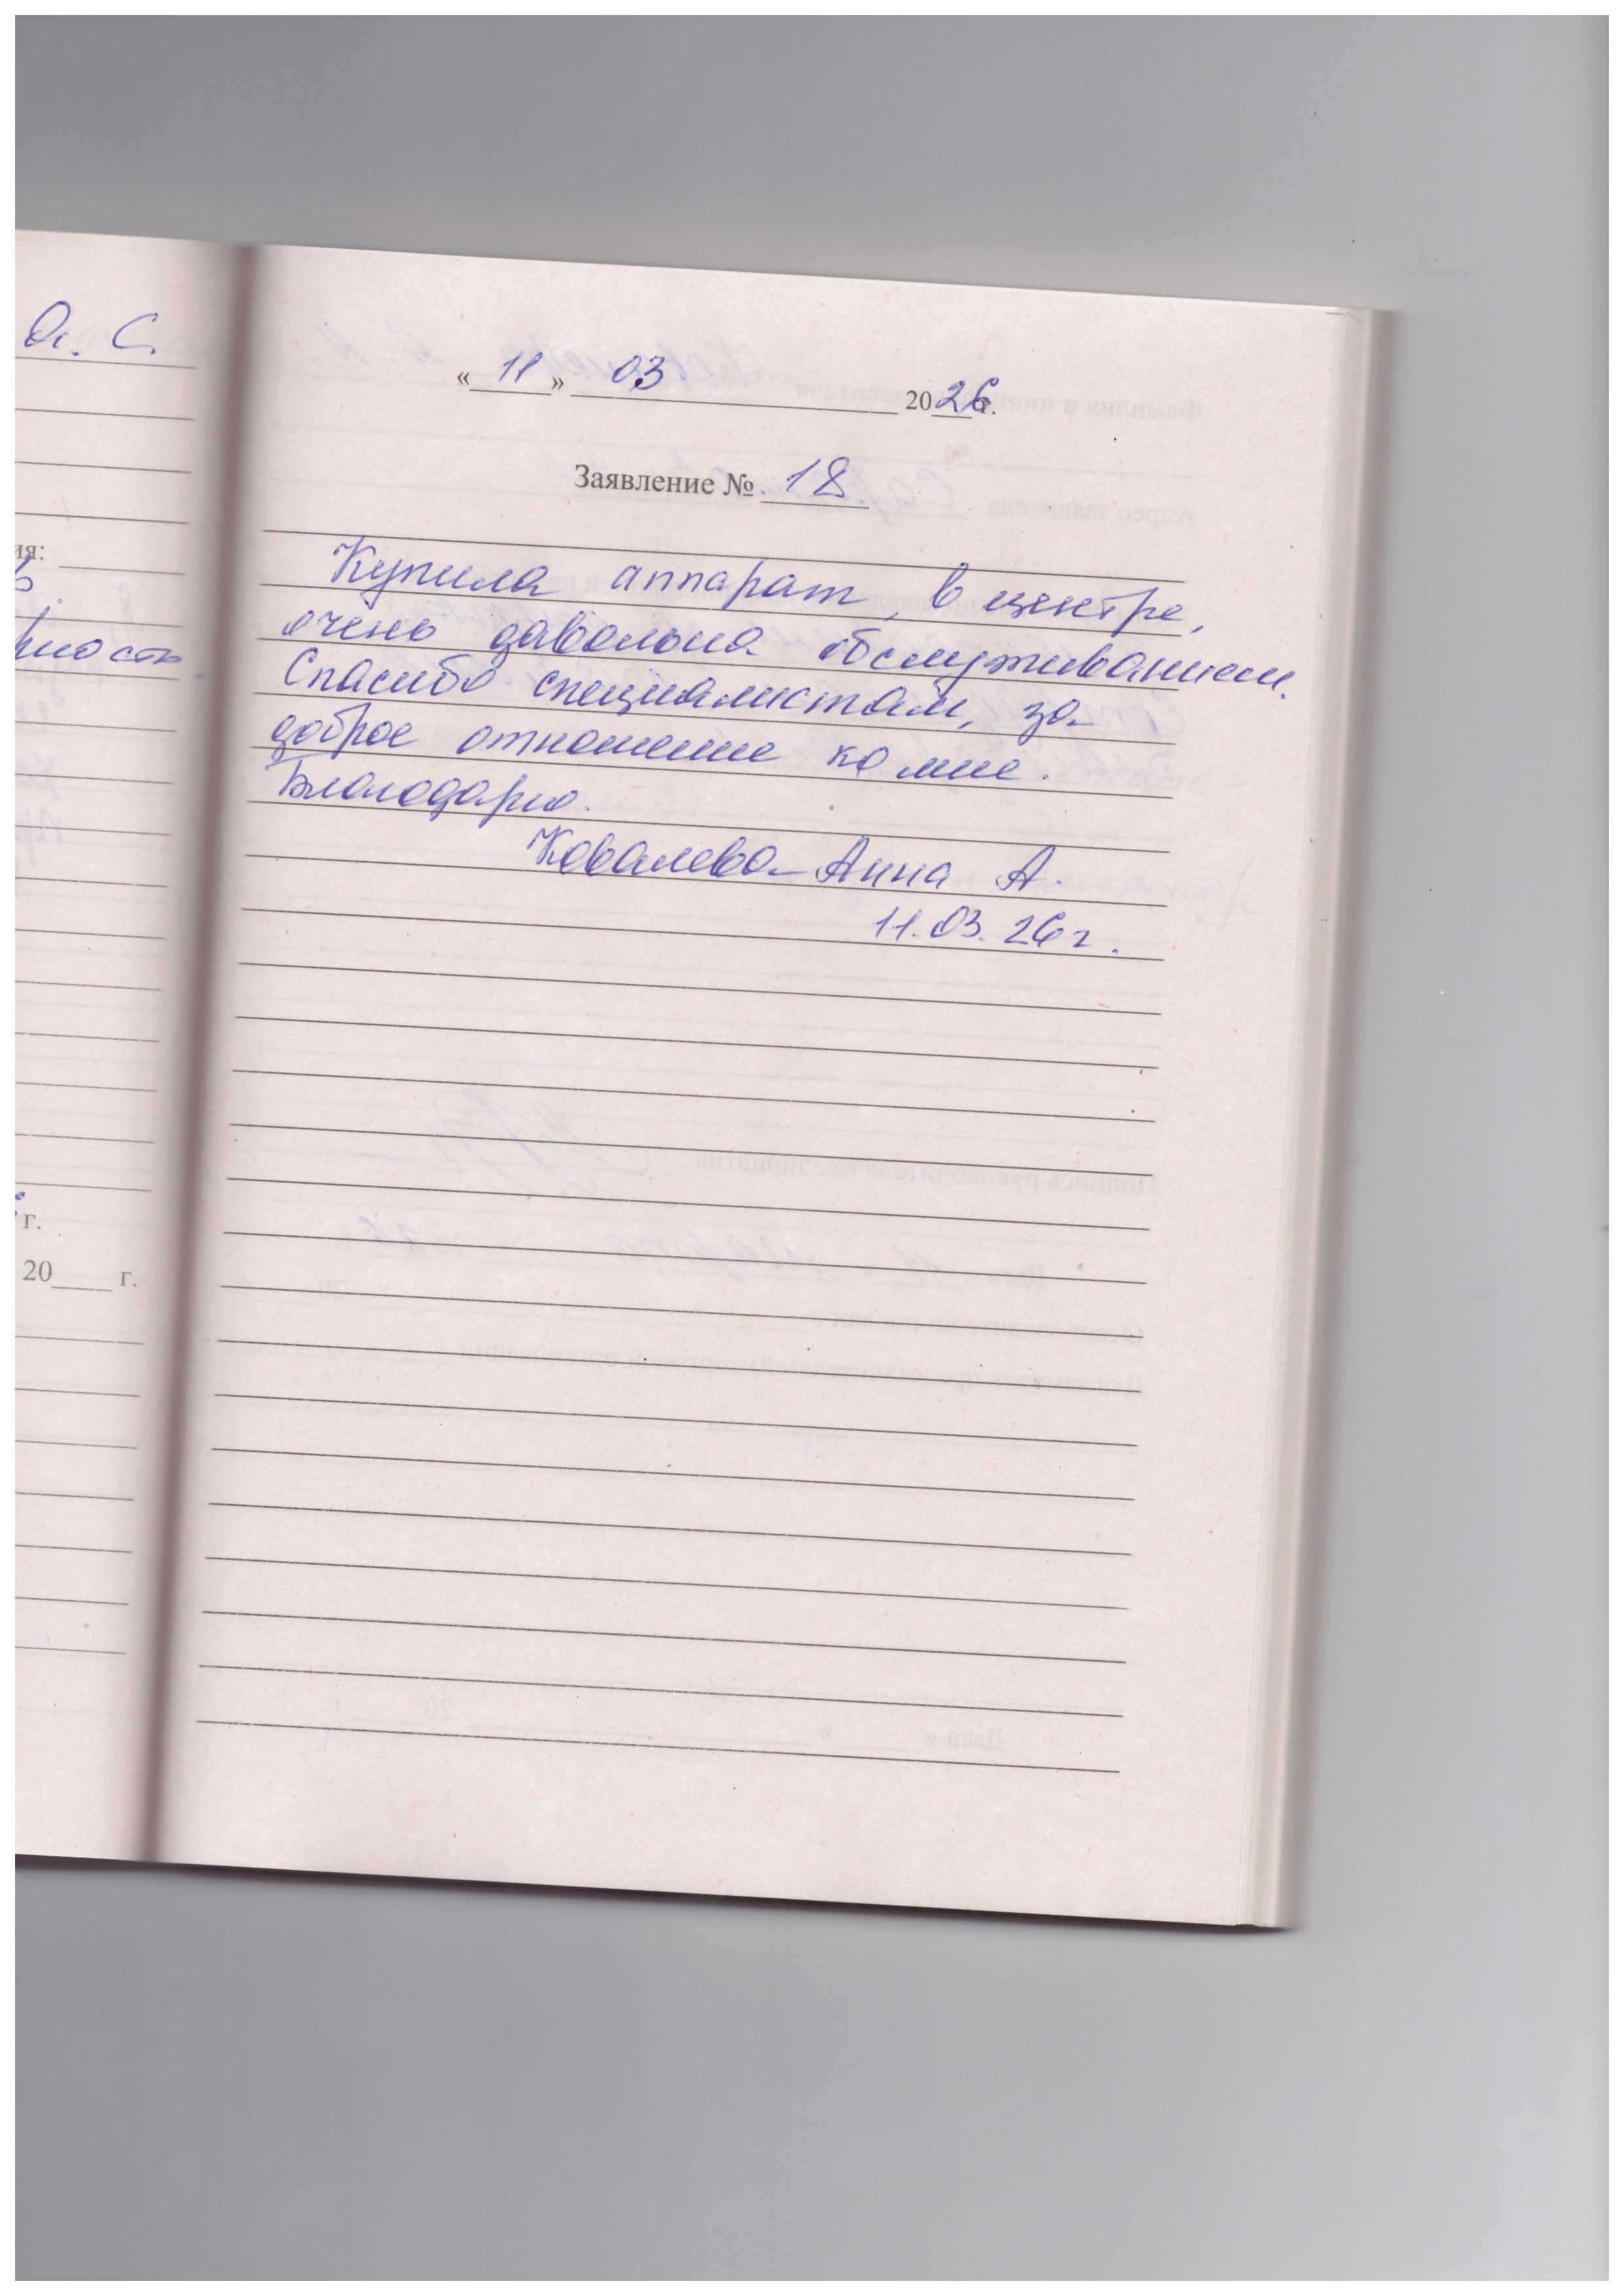 О. С.
ия:
г.
20____ г.
«11» 03 2026 г.
Заявление № 18
Купила аппарат, в центре,
очень давольна обслуживанием.
Спасибо специалистам, за
доброе отношение ко мне.
Благодарю.
Ковалева Анна А.
11.03.26г.